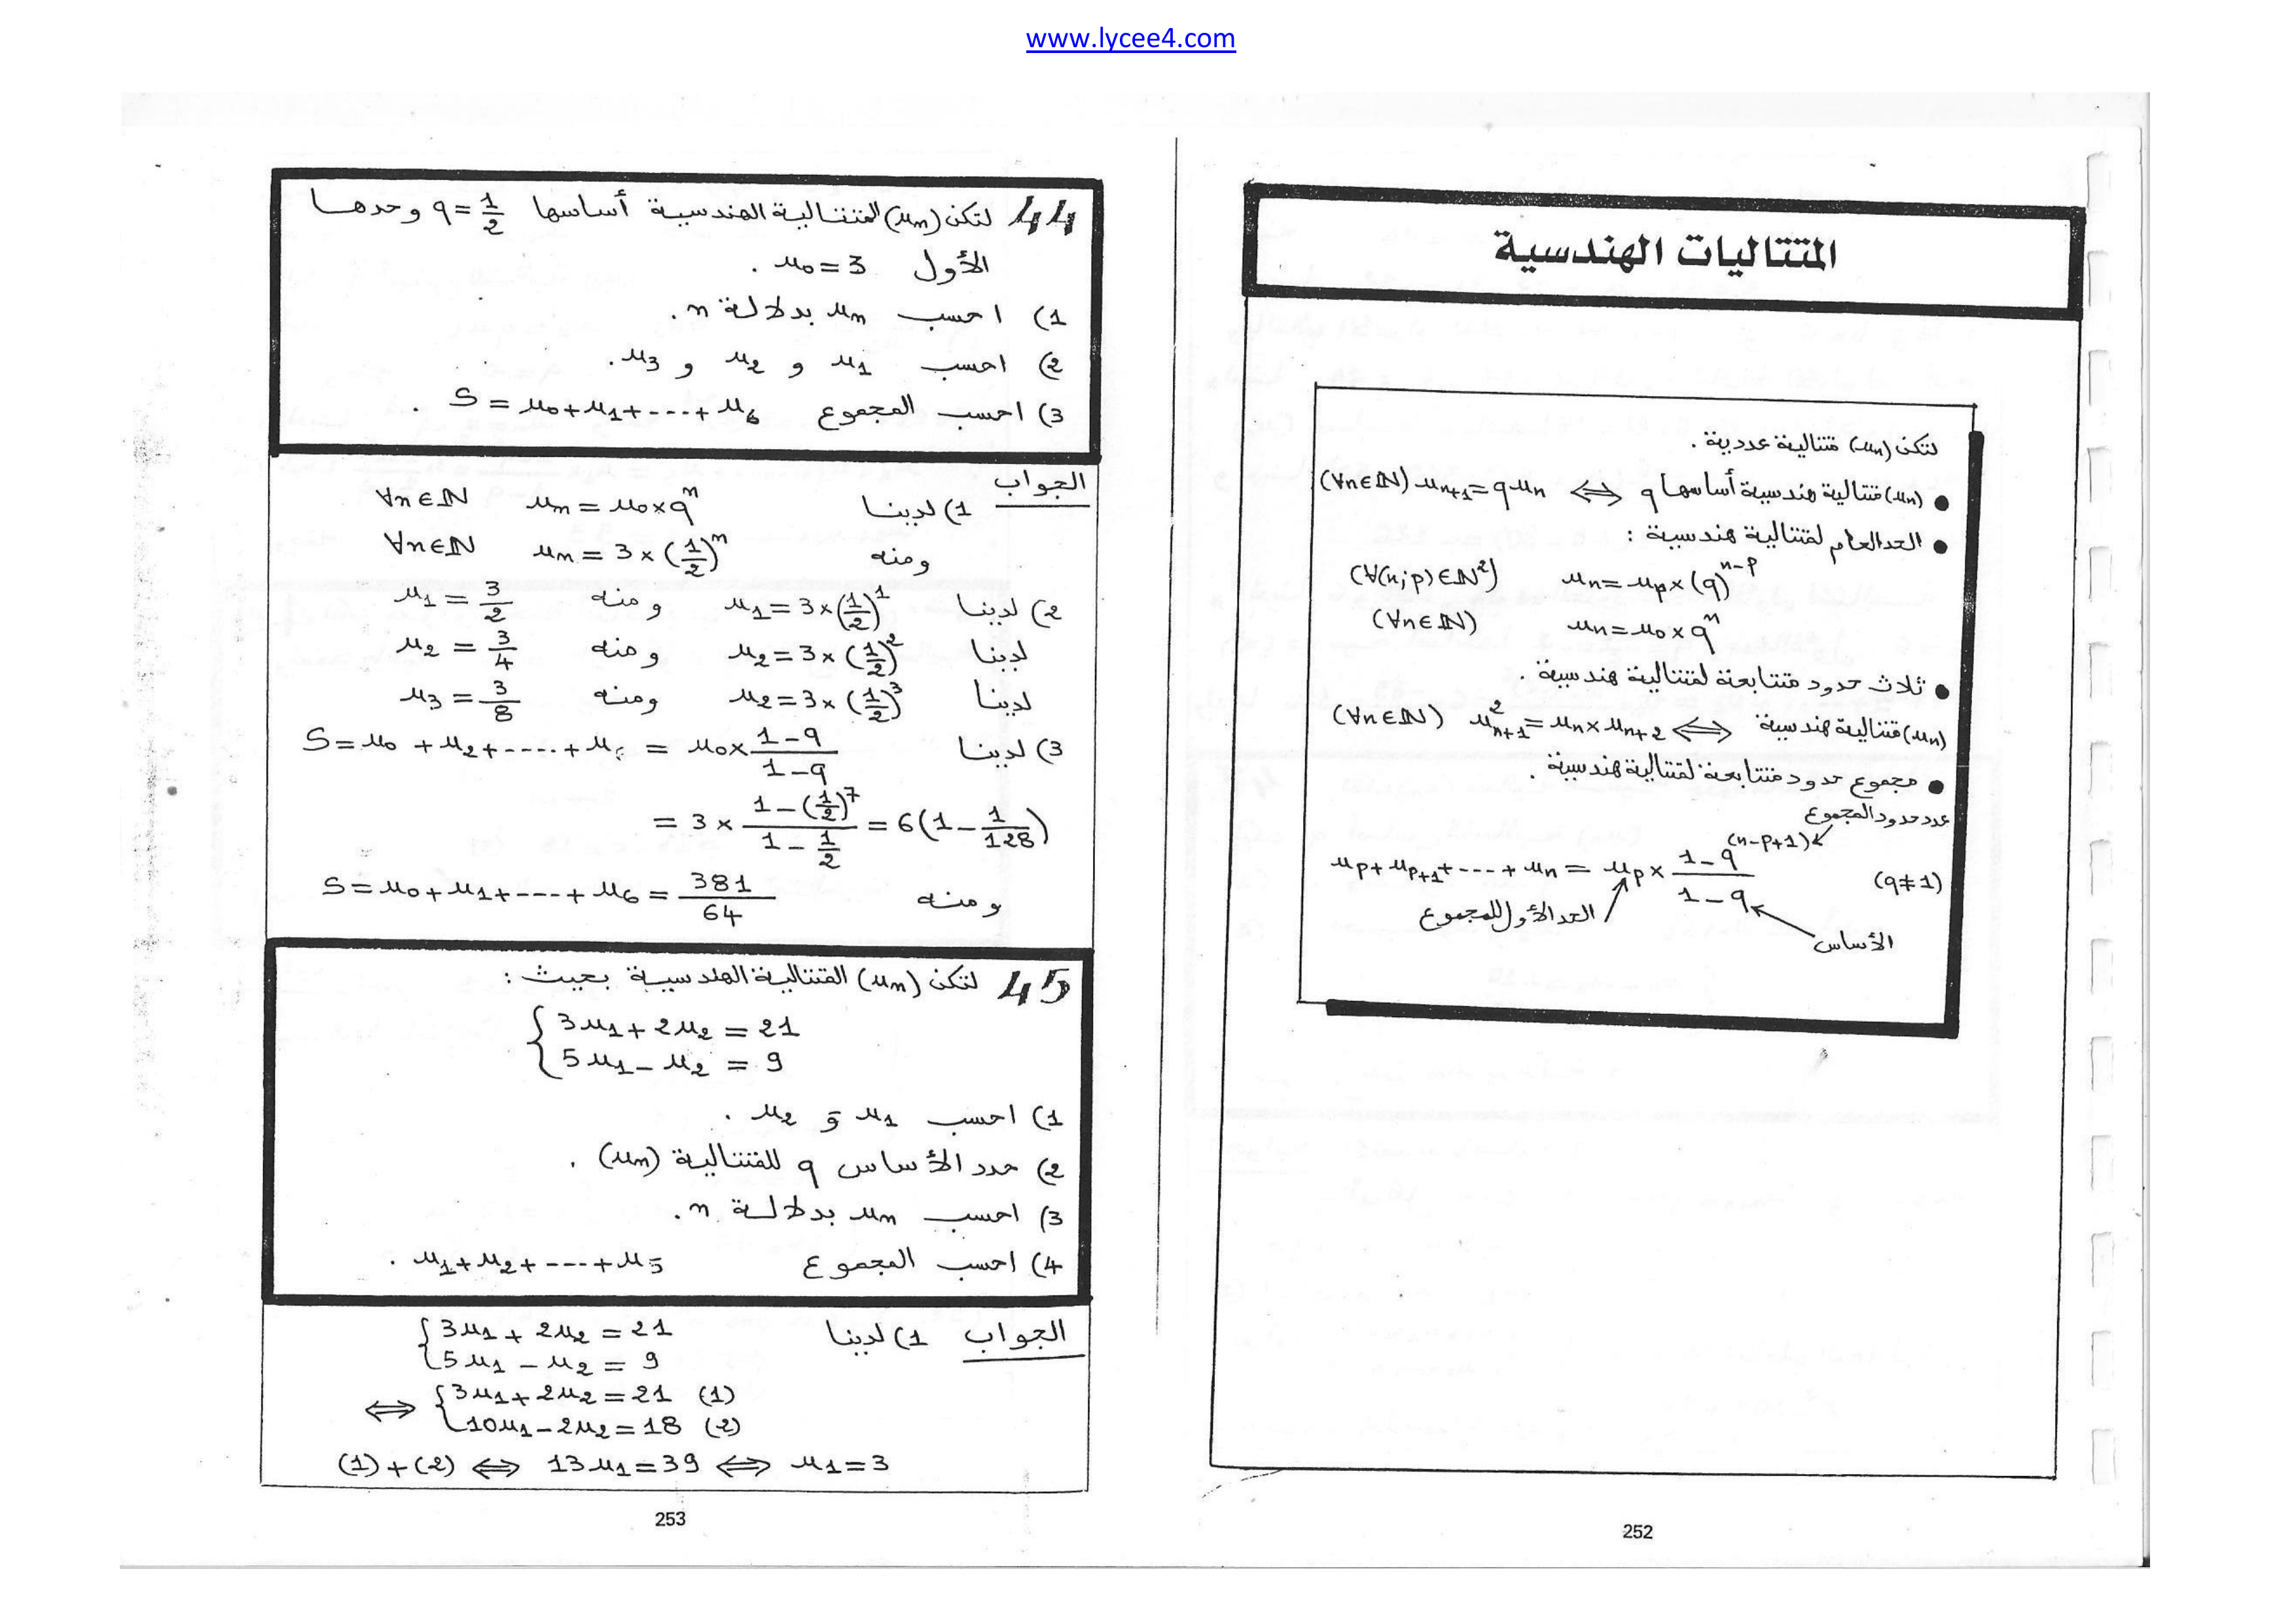 www.lycee4.com
المتتاليات الهندسية
لتكن (un) متتالية عددية .
● (un) متتالية هندسية أساسها q ⟺ (∀n∈ℕ) un+1 = q un
● الحد العام لمتتالية هندسية :
un = up × (q)^(n-p) (∀(n;p)∈ℕ²)
un = u0 × q^n (∀n∈ℕ)
● ثلاث حدود متتابعة لمتتالية هندسية .
(un) متتالية هندسية ⟺ u²n+1 = un × un+2 (∀n∈ℕ)
● مجموع حدود متتابعة لمتتالية هندسية .
عدد حدود المجموع
up + up+1 + ---- + un = up × (1 - q^(n-p+1)) / (1 - q) (q ≠ 1)
الحد الأول للمجموع
الأساس
252
44 لتكن (un) المتتالية الهندسية أساسها q = 1/2 وحدها
الأول u0 = 3 .
1) احسب un بدلالة n .
2) احسب u1 و u2 و u3 .
3) احسب المجموع S = u0 + u1 + --- + u6 .
الجواب
1) لدينا un = u0 × q^n ∀n∈ℕ
ومنه un = 3 × (1/2)^n ∀n∈ℕ
2) لدينا u1 = 3 × (1/2)^1 ومنه u1 = 3/2
لدينا u2 = 3 × (1/2)^2 ومنه u2 = 3/4
لدينا u2 = 3 × (1/2)^3 ومنه u3 = 3/8
3) لدينا S = u0 + u2 + ----- + u6 = u0 × (1 - q) / (1 - q)
= 3 × (1 - (1/2)^7) / (1 - 1/2) = 6(1 - 1/128)
ومنه S = u0 + u1 + ---- + u6 = 381/64
45 لتكن (un) المتتالية الهندسية بحيث :
{ 3u1 + 2u2 = 21
5u1 - u2 = 9
1) احسب u1 و u2 .
2) حدد الأساس q للمتتالية (un) .
3) احسب un بدلالة n .
4) احسب المجموع u1 + u2 + ---- + u5 .
الجواب 1) لدينا { 3u1 + 2u2 = 21
5u1 - u2 = 9
⟺ { 3u1 + 2u2 = 21 (1)
10u1 - 2u2 = 18 (2)
(1) + (2) ⟺ 13u1 = 39 ⟺ u1 = 3
253